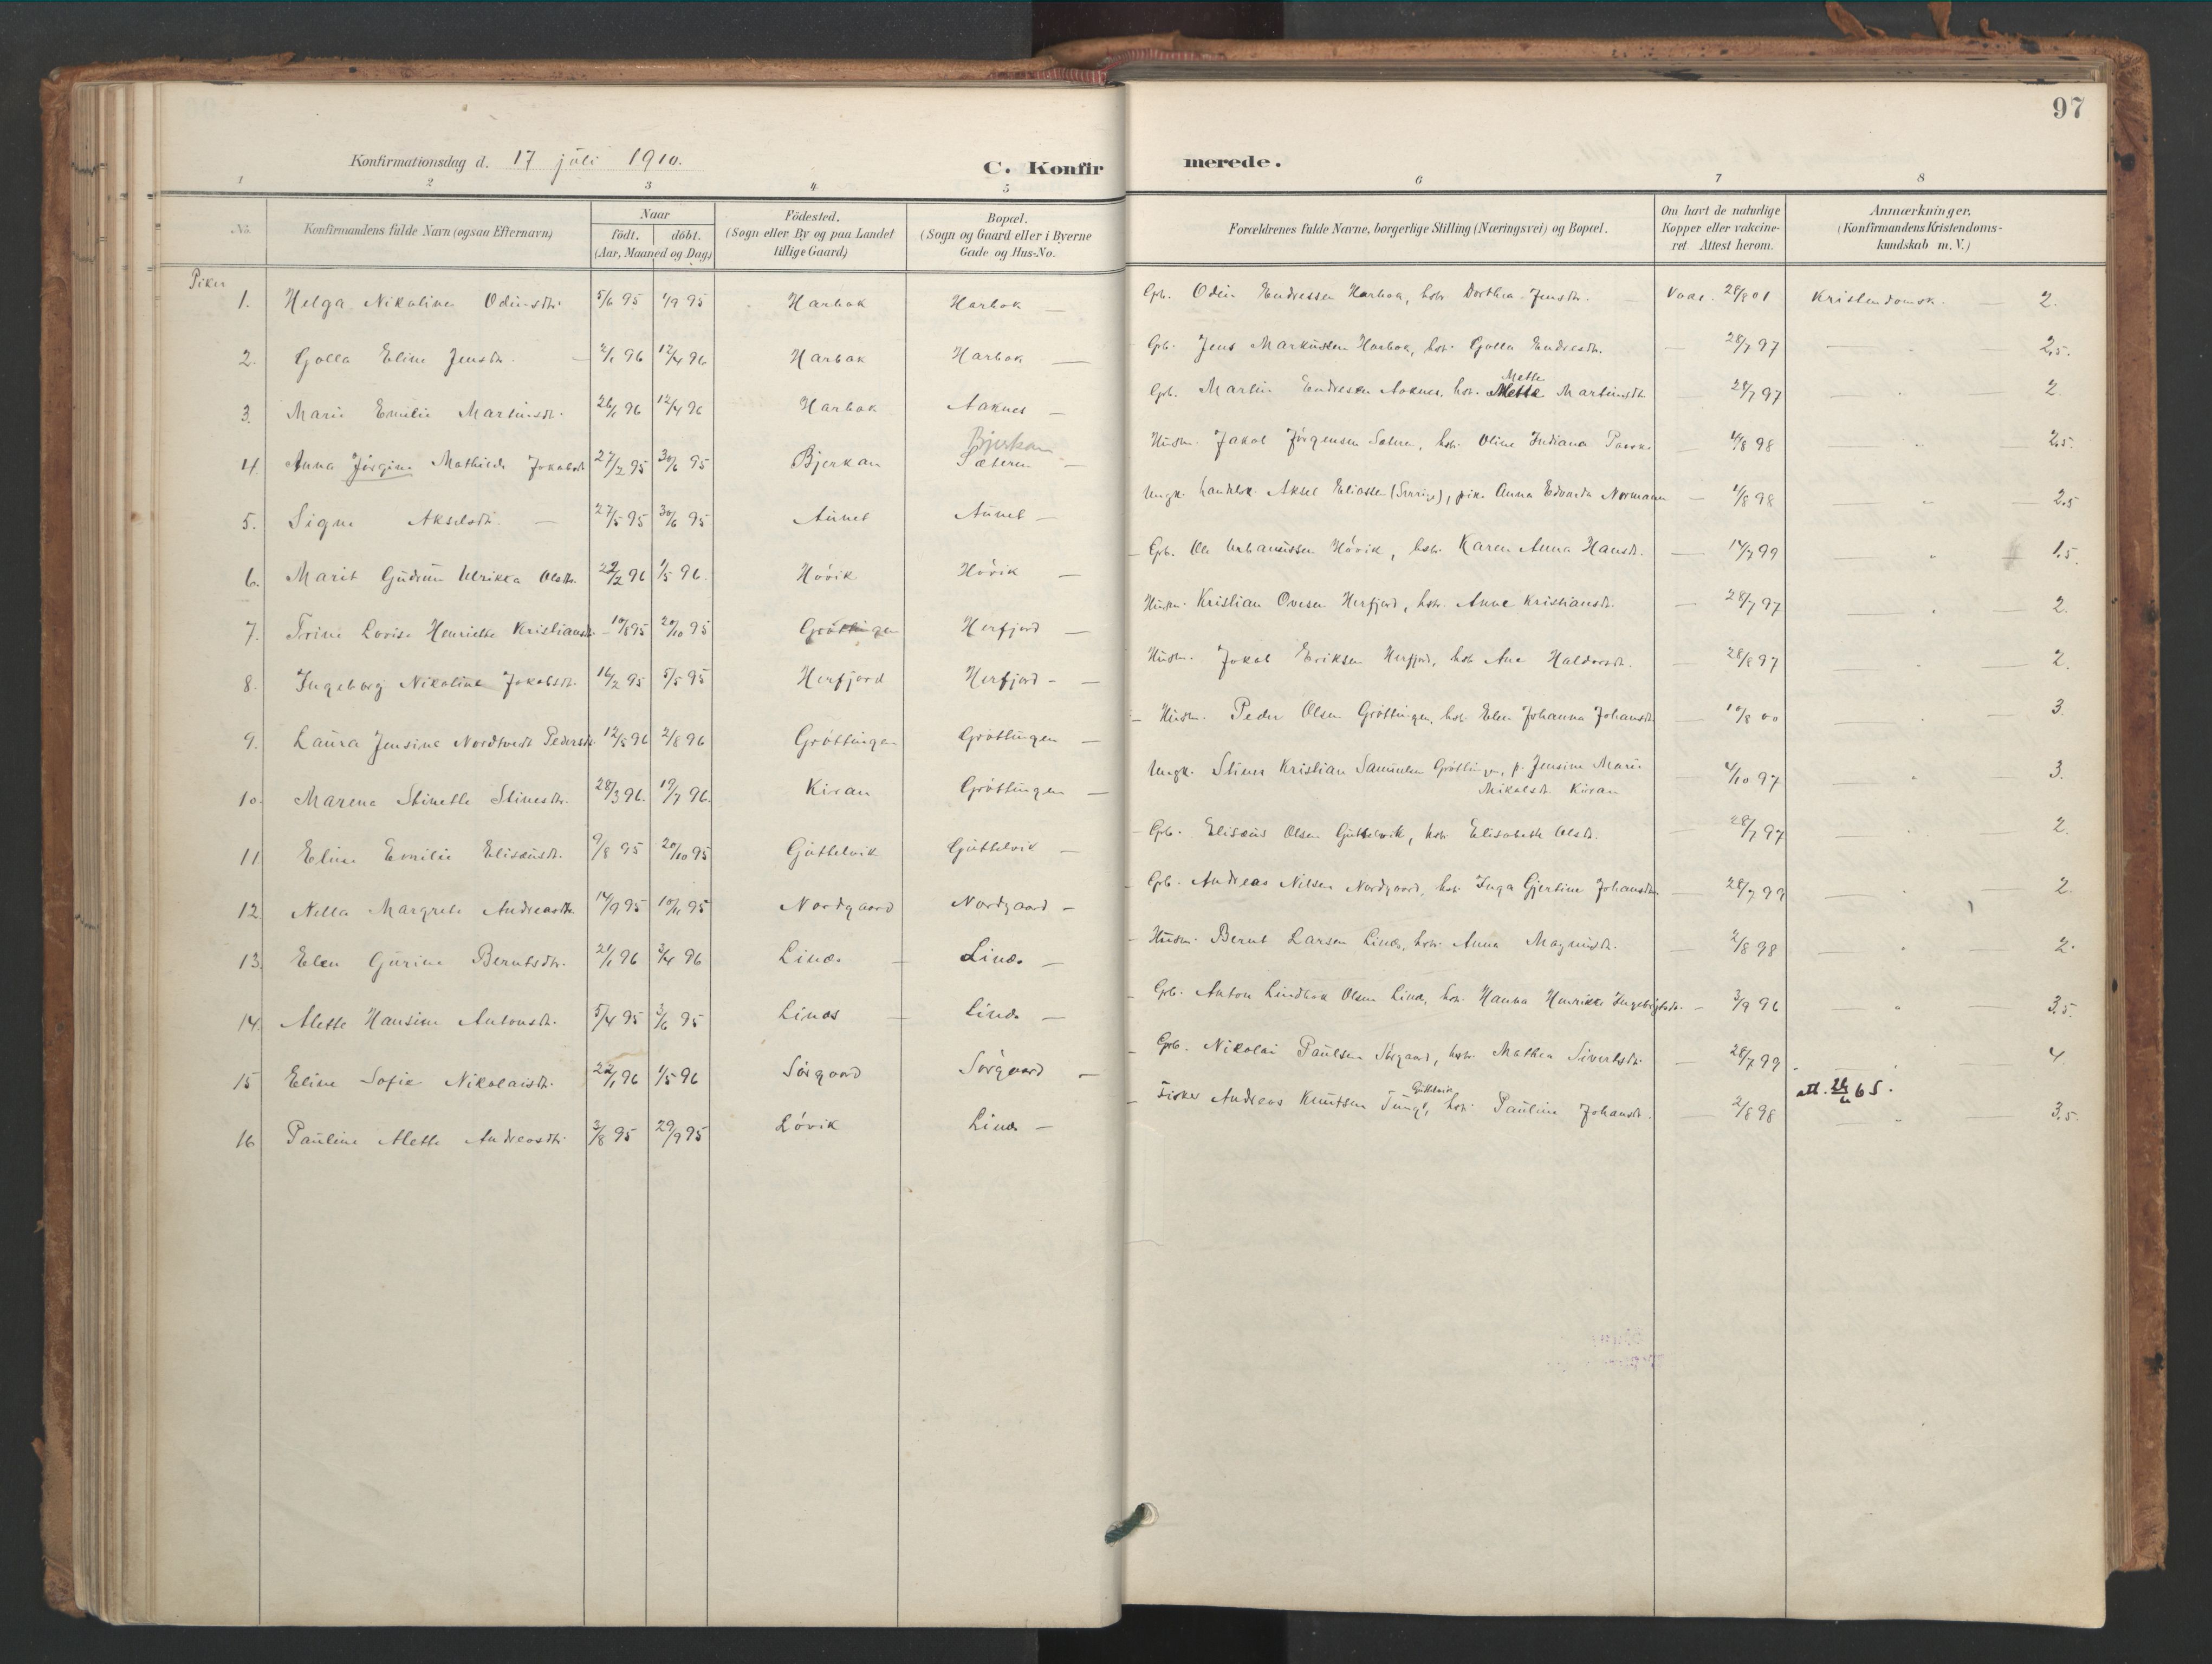 97
Konfirmationsdag d. 17 juli 1910.
C. Konfirmerede.
1 2 3 4 5 6 7 8
No.
Konfirmandens fulde Navn (ogsaa Efternavn)
Naar
födt. döbt.
(Aar, Maaned og Dag)
Födested.
(Sogn eller By og paa Landet
tillige Gaard)
Bopæl.
(Sogn og Gaard eller i Byerne
Gade og Hus-No.
Forældrenes fulde Navne, borgerlige Stilling (Næringsvei) og Bopæl.
Om havt de naturlige
Kopper eller vakcine-
ret Attest herom.
Anmærkninger.
(Konfirmandens Kristendoms-
kundskab m. V.)
Piker
1. Helga Nikoline Odinsdtr. 5/6 95 1/9 95 Harbak Harbak — Gb. Odin Endressen Harbak, hstr. Dorthea Jensdtr. Vacc. 28/8 01 Kristendomsk. — 2.
2. Golla Eline Jensdtr. — 2/1 96 12/4 96 Harbak Harbak — Gb. Jens Markussen Harbak, hstr. Golla Endresdtr. — 28/7 97 — " — 2,5.
3. Marie Emilie Martinsdtr. 26/1 96 12/4 96 Harbak Aaknes — Gb. Martin Endresen Aaknes, hstr. Mette Mette Martinsdtr. 28/7 97 — " — 2.
4. Anna Jörgine Mathilde Jakobsdtr. 27/2 95 30/6 95 Bjerkan Bjerkan Sæteren — Husm. Jakob Jörgensen Sæteren, hstr. Oline Indiana 4/8 98 " 2,5.
5. Signe Akselsdtr. — 27/5 95 30/6 95 Aunet Aunet — Ungk. handelsk. Aksel Eliassen (Sverige), pike Anna Edvarda Normann — 1/8 98 — " — 2.5
6. Marit Gudrun Ulrikka Olsdtr. 22/2 96 4/5 96. Hövik Hövik — Gb. Ole Urbanussen Hövik, hstr. Karen Anna Hansdtr. — 14/7 99 — " — 1,5.
7. Trine Lovise Henriette Kristiansdtr. 10/8 95 20/10 95 Gröttingen Herfjord — Husm. Kristian Ovesen Herfjord, hstr. Anne Kristiansdtr. — 28/7 97 — " — 2.
8. Ingeborg Nikoline Jakobsdtr. 16/2 95 5/5 95 Herfjord Herfjord — Husm. Jakob Eriksen Herfjord, hstr. Ane Haldorsdtr. — 28/8 97 — " — 2.
9. Laura Jensine Nordtvedt Pedersdtr. 12/5 96 2/8 96 Gröttingen Gröttingen — Husm. Peder Olsen Gröttingen, hstr. Elen Johanna Johansdtr. 10/8 00 — " — 3.
10. Marena Stinette Stinesdtr. 28/3 96. 19/7 96. Kiran Gröttingen — Ungk. Stiner Kristian Samuelsen Gröttingen, p. Jensine Marie
Mikalsdtr. Kiran 4/10 97 — " — 3.
11. Eline Emilie Elisæusdtr. 9/8 95 20/10 95 Guttelvik Guttelvik — Gb. Elisæus Olsen Guttelvik, hstr. Elisabeth Olsdtr. — 28/7 97 — " — 2.
12. Nella Margrete Andreasdtr. 14/9 95 10/11 95 Nordgaard Nordgaard — Gb. Andreas Nilsen Nordgaard, hstr. Inga Gjertine Johansdtr. — 28/7 99 — " — 2.
13. Elen Gurine Berntsdtr. 21/1 96 3/4 96 Linæs — Linæs — Husm. Bernt Larsen Linæs, hstr. Anna Magnusdtr. — 2/8 98 — " — 2.
14. Alette Hansine Antonsdtr. 5/4 95 3/6 95 Linæs — Linæs — Gb. Anton Lindbak Olsen Linæs, hstr. Hanna Henrikke Ingebrigtsdtr. — 3/9 96 — " — 3,5.
15 Eline Sofie Nikolaisdtr. 22/1 96 4/5 96 Sörgaard Sörgaard — Gb. Nikolai Paulsen Sörgaard, hstr. Mathea Sivertsdtr. — 28/7 99 — " — 4
att. 24/6 65.
16. Pauline Alette Andreasdtr. 3/8 95 29/9 95 Lövik Linæs — Fisker Andreas Knutsen Guttelvik Tung, hstr. Pauline Johansdtr. — 2/8 98 — " — 3,5.